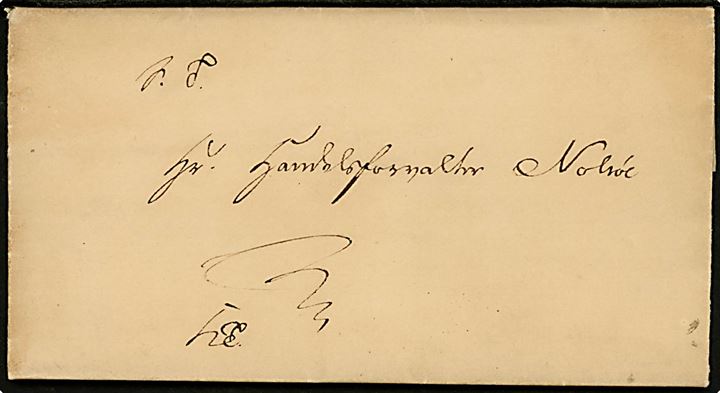 S. T.
Hr. Handelsforvalter Nolsøe